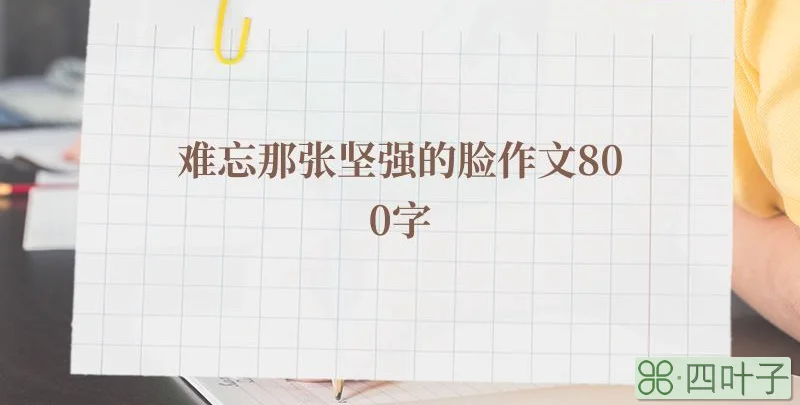 难忘那张坚强的脸作文80
0字
四叶子